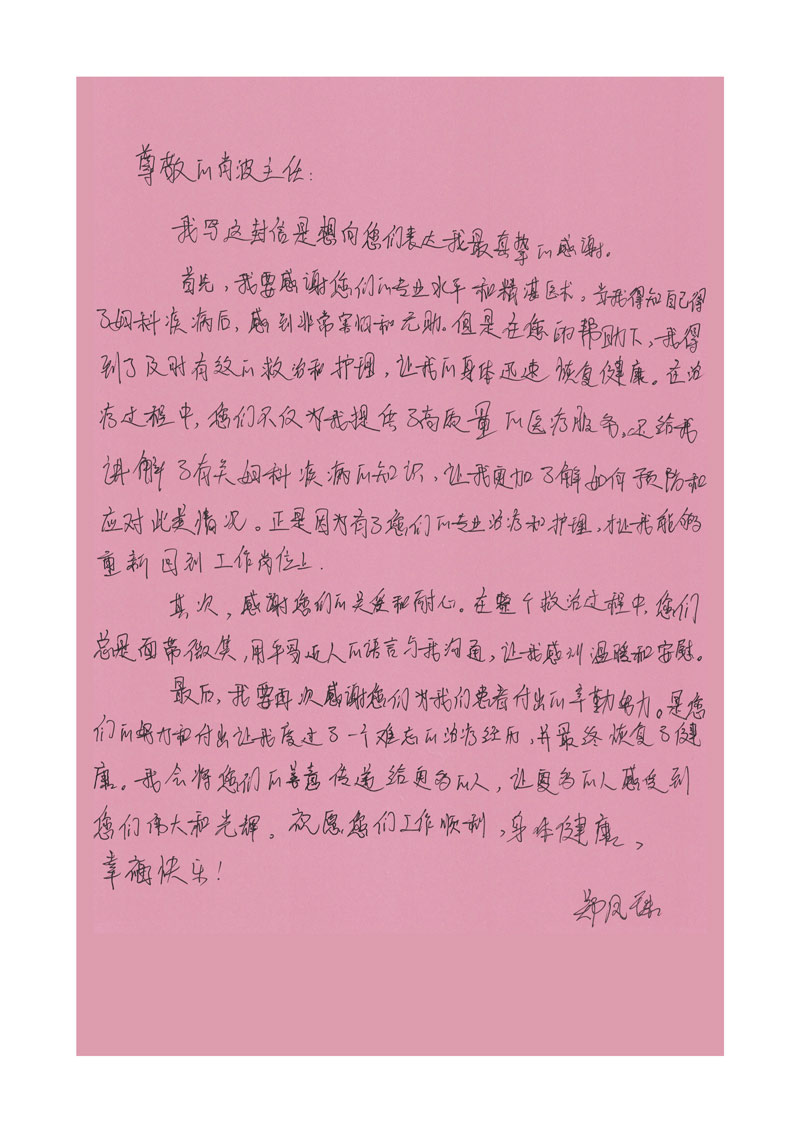 尊敬的肖波主任：
我写这封信是想向您们表达我最真挚的感谢。
首先，我要感谢您们的专业水平和精湛医术，当我得知自己得
了妇科疾病后，感到非常害怕和无助。但是在您的帮助下，我得
到了及时有效的救治和护理，让我的身体迅速恢复健康。在治
疗过程中，您们不仅为我提供了高质量的医疗服务，还给我
讲解了有关妇科疾病的知识，让我更加了解如何预防和
应对此类情况。正是因为有了您们的专业治疗和护理，才让我能够
重新回到工作岗位上.
其次，感谢您们的关爱和耐心。在整个救治过程中，您们
总是面带微笑，用平易近人的语言与我沟通，让我感到温暖和安慰。
最后，我要再次感谢您们为我们患者付出的辛勤努力。是您
们的努力和付出让我度过了一个难忘的治疗经历，并最终恢复了健
康。我会将您们的善意传递给更多的人，让更多的人感受到
您们伟大和光辉。祝愿您们工作顺利，身体健康、
幸福快乐！
郑凤